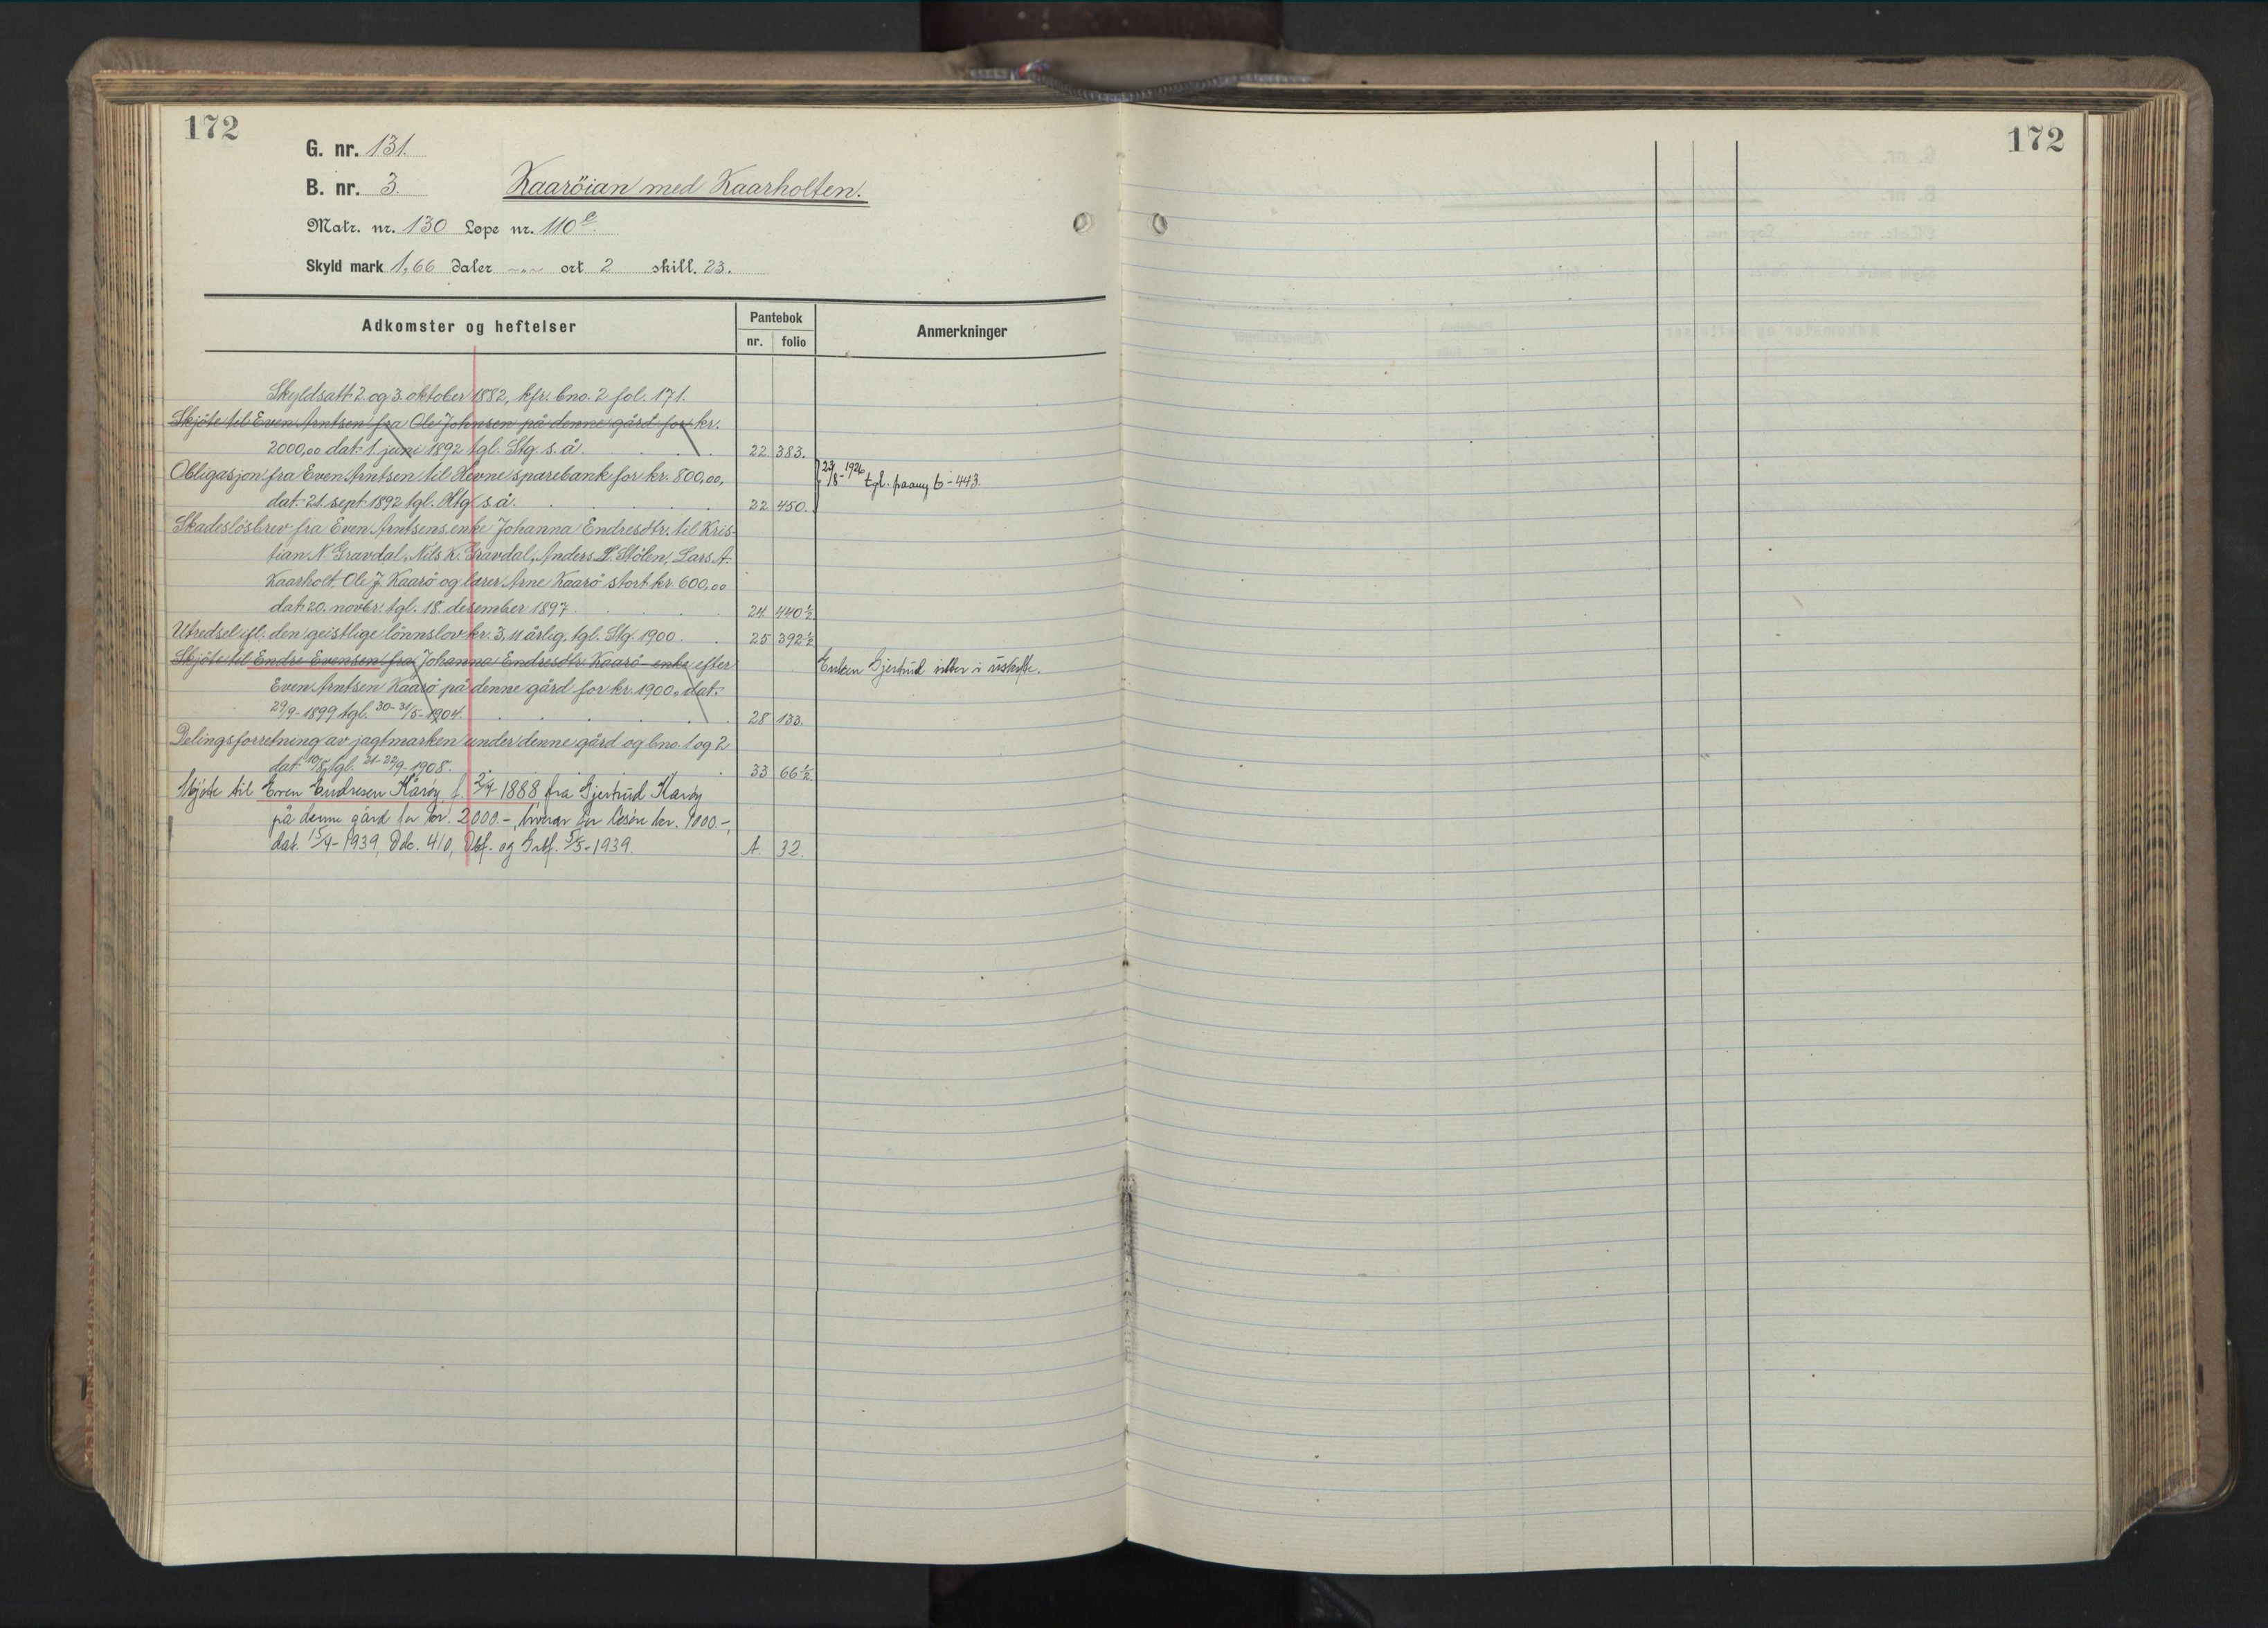 172
172
G. nr. 131.
B. nr. 3.
Kaaröian med Kaarholten.
Matr. nr. 130 Løpe nr. 110 c.
Skyld mark 1,66 daler -„- ort 2 skill. 23.
Adkomster og heftelser
Pantebok
nr. folio
Anmerkninger
Skyldsatt 2. og 3. oktober 1882, kfr. bno. 2 fol. 171.
Skjöte til Even Arntsen fra Ole Johnsen på denne gård for kr.
2000,00 dat. 1. juni 1892 tgl. Stg. s. å. 22 383.
Obligasjon fra Even Arntsen til Hevne sparebank for kr. 800,00, 23/8-1926 tgl. paany 6-443.
dat. 21. sept 1892 tgl. Htg. s. å. 22 450.
Skadeslösbrev fra Even Arntsens enke Johanna Endresdtr. til Kris-
tian N. Gravdal, Nils K. Gravdal, Anders Stölen, Lars A.
Kaarholt, Ole J. Kaarö og lærer Arne Kaarö stort kr. 600,00
dat. 20. novbr. tgl. 18. desember 1897. 24 440½
Utredsel ifl. den geistlige lönnslov kr. 3,11 årlig, tgl. Stg. 1900. 25 392½
Skjöte til Endre Evensen fra Johanna Endresdtr. Kaarö enke efter Enken Gjertrud sitter i uskifte.
Even Arntsen Kaarö på denne gård for kr. 1900,- dat.
29/9-1899 tgl. 30-31/5-1904. 28 133.
Delingsforretning av jagtmarken under denne gård og bno. 1 og 2
dat. 10/8 tgl. 21-22/9-1908. 33 66½
Skjøte til Even Endresen Kårøy f. 2/4-1888 fra Gjertrud Karøy
på denne gård for kr. 2000.-, hvorav for løsøre kr. 1000.-,
dat. 15/4-1939, Ddc. 410, Dbf. og Grbf. 5/5-1939. A. 32.